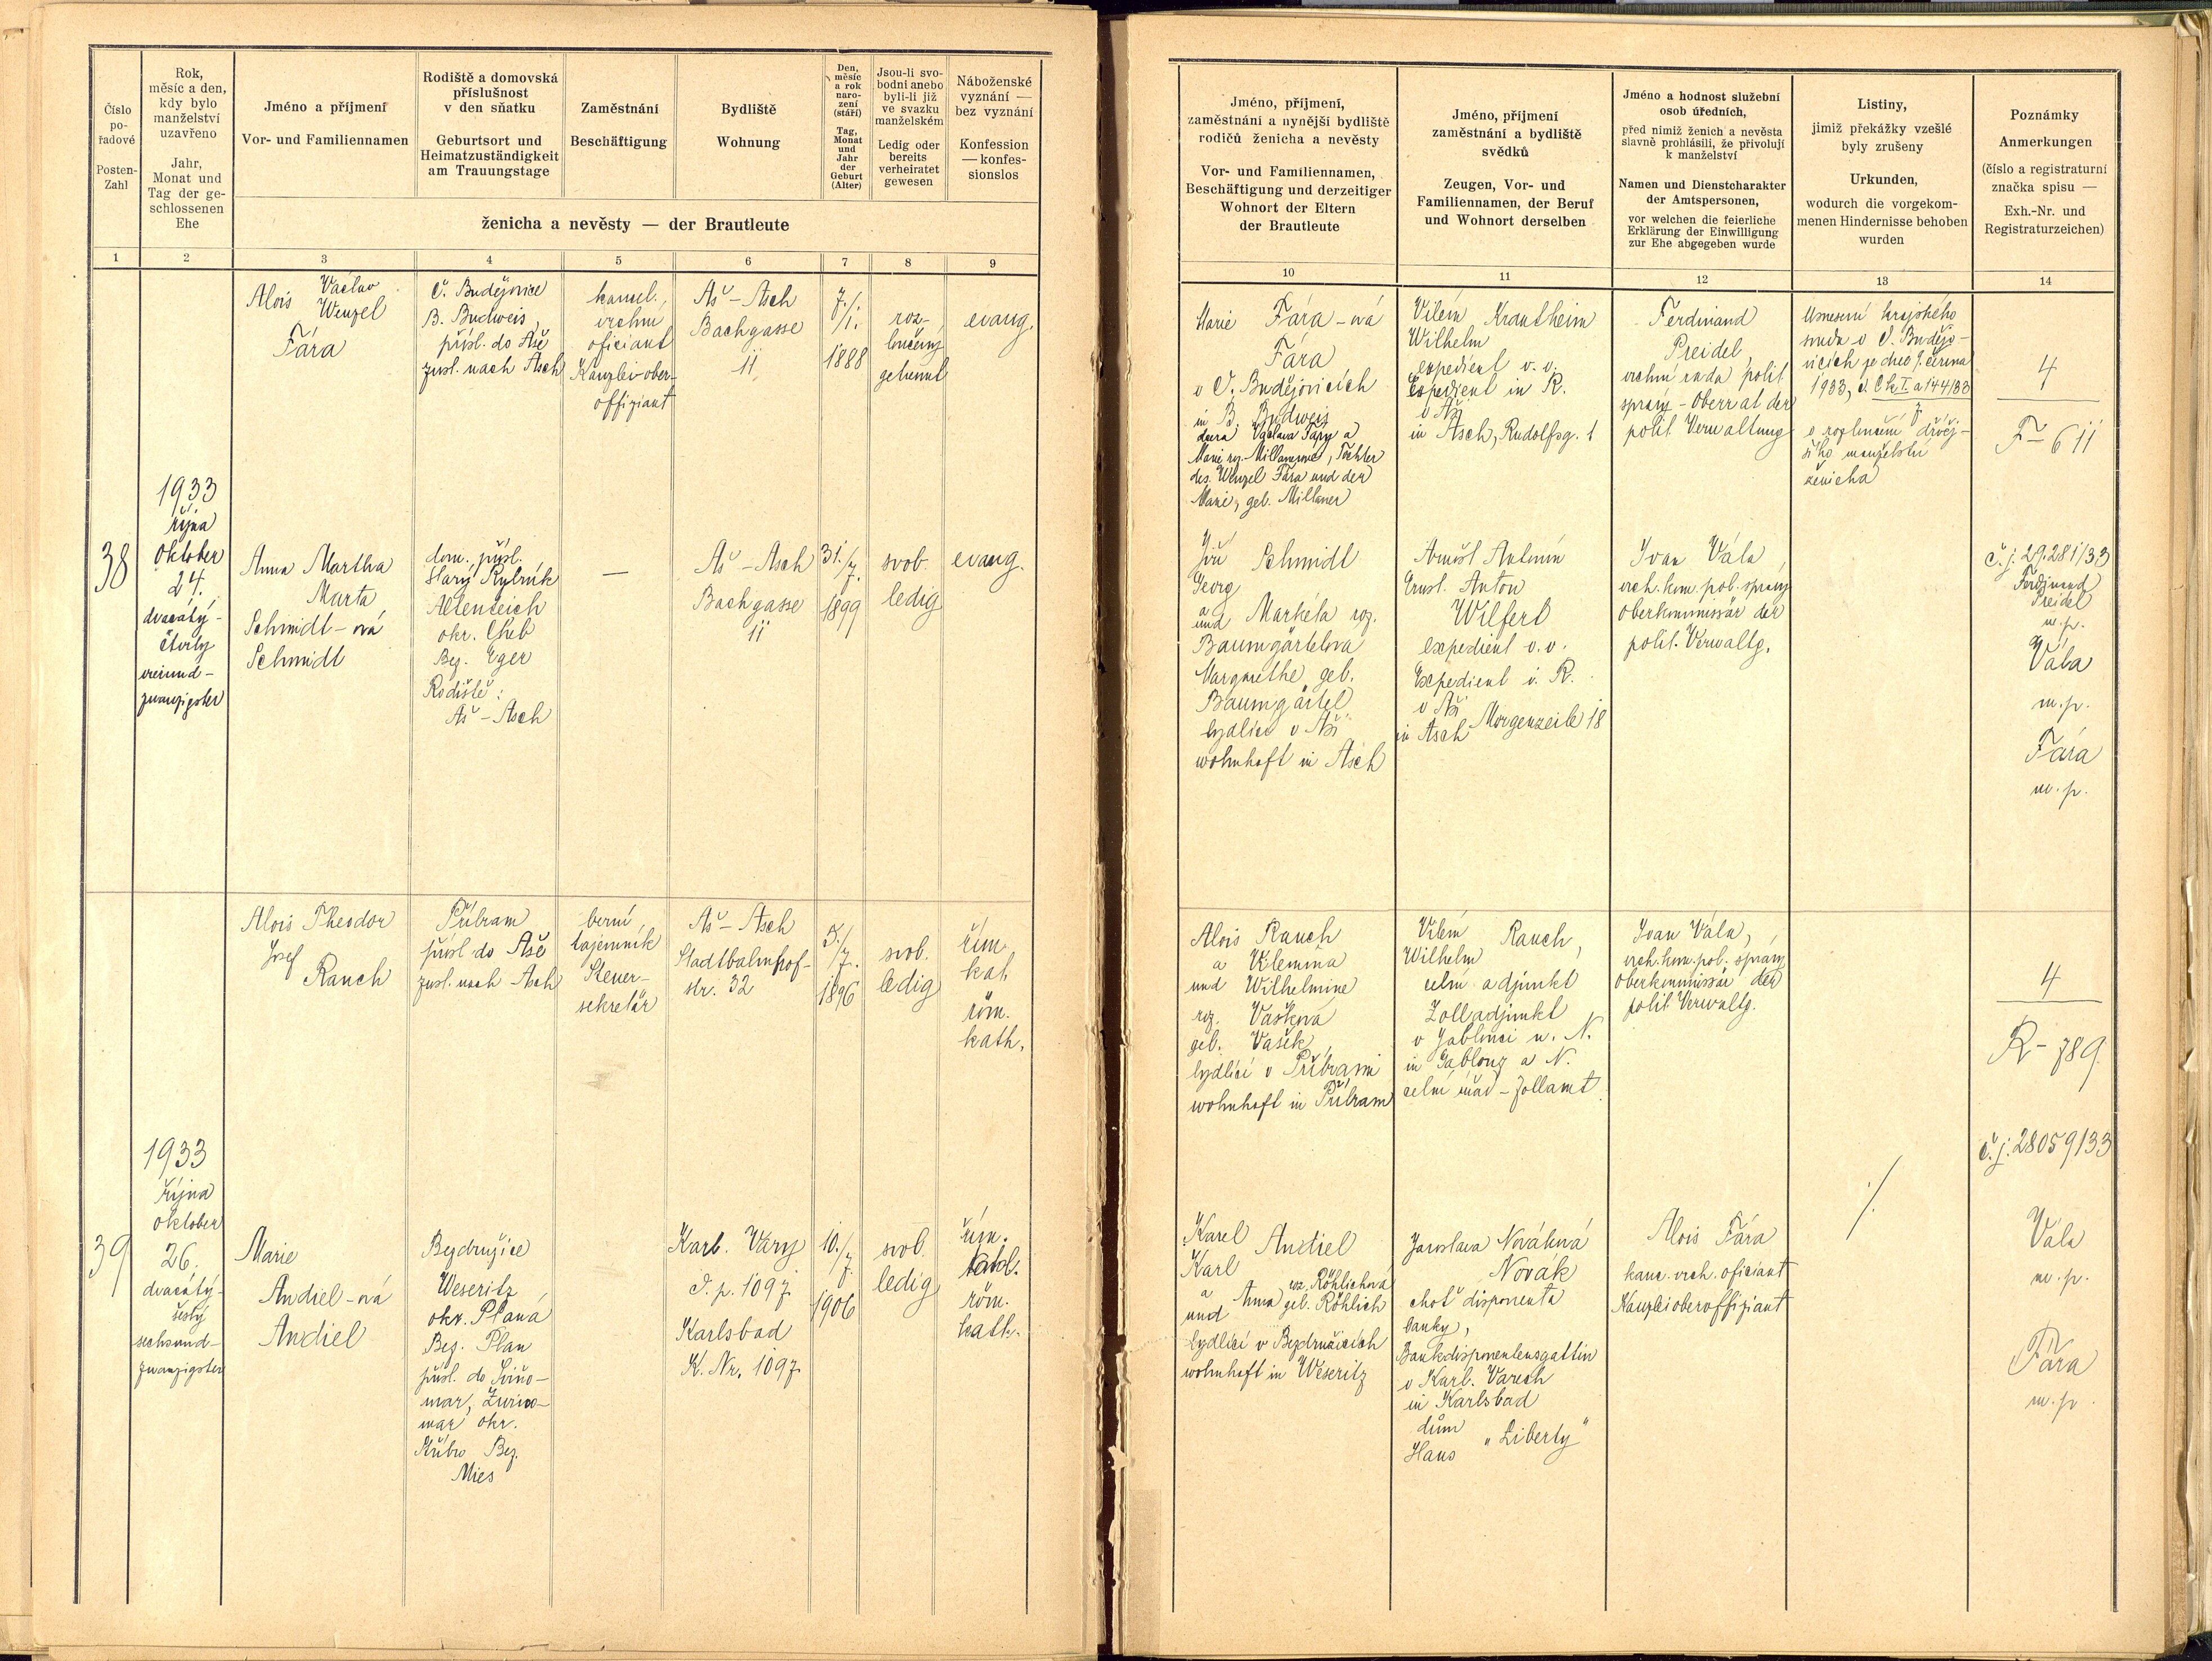 Číslo
po-
řadové
Posten-
Zahl
Rok,
měsíc a den,
kdy bylo
manželství
uzavřeno
Jahr,
Monat und
Tag der ge-
schlossenen
Ehe
Jméno a příjmení
Vor- und Familiennamen
Rodiště a domovská
příslušnost
v den sňatku
Geburtsort und
Heimatzuständigkeit
am Trauungstage
Zaměstnání
Beschäftigung
Bydliště
Wohnung
Den,
měsíc
a rok
naro-
zení
(stáří)
Tag,
Monat
und
Jahr
der
Geburt
(Alter)
Jsou-li svo-
bodni anebo
byli-li již
ve svazku
manželském
Ledig oder
bereits
verheiratet
gewesen
Náboženské
vyznání —
bez vyznání
Konfession
— konfes-
sionslos
ženicha a nevěsty — der Brautleute
1 2 3 4 5 6 7 8 9
38
1933
října
Oktober
24.
dvacátý-
čtvrtý
vierund-
zwanzigster
Václav
Alois Wenzel
Fára
Č. Budějovice
B. Budweis,
přísl. do Aše
zust. nach Asch
kancel.
vrchní
oficiant
Kanzlei-ober-
offiziant
Aš – Asch
Bachgasse
11
7./
1.
1888
roz-
loučený
getrennt
evang.
Anna Martha
Marta
Schmidt-ová
Schmidt
dom. přísl.
Starý Rybník
Altenteich
okr. Cheb
Bez. Eger
Rodiště:
Aš – Asch
—
Aš – Asch
Bachgasse
11
31./
7.
1899
svob.
ledig
evang.
39
1933
října
Oktober
26.
dvacátý-
šestý
sechsund-
zwanzigster
Alois Theodor
Josef
Rauch
Příbram
přísl do Aše
zust. nach Asch
berní
tajemník
Steuer-
sekretär
Aš – Asch
Stadtbahnhof-
str. 32
5./
7.
1896
svob.
ledig
řím.
kat.
röm.
kath.
Marie
Andiel-ová
Andiel
Bezdružice
Weseritz
okr. Planá
Bez. Plan
přísl. do
okr.
Stříbro Bez.
Mies
Karl. Vary
č. p. 1097
Karlsbad
K. Nr. 1097
10./
7.
1906
svob.
ledig
řím.
katol.
röm.
kath.
Jméno, příjmení,
zaměstnání a nynější bydliště
rodičů ženicha a nevěsty
Vor- und Familiennamen,
Beschäftigung und derzeitiger
Wohnort der Eltern
der Brautleute
Jméno, příjmení
zaměstnání a bydliště
svědků
Zeugen, Vor- und
Familiennamen, der Beruf
und Wohnort derselben
Jméno a hodnost služební
osob úředních,
před nimiž ženich a nevěsta
slavně prohlásili, že přivolují
k manželství
Namen und Dienstcharakter
der Amtspersonen,
vor welchen die feierliche
Erklärung der Einwilligung
zur Ehe abgegeben wurde
Listiny,
jimiž překážky vzešlé
byly zrušeny
Urkunden,
wodurch die vorgekom-
menen Hindernisse behoben
wurden
Poznámky
Anmerkungen
(číslo a registraturní
značka spisu —
Exh.-Nr. und
Registraturzeichen)
10 11 12 13 14
Marie Fára-ová
Fára
v Č. Budějovicích
in B. Budweis
dcera Václava Fáry a
Marie roz. , Tochter
des Wenzel Fára und der
Marie, geb. Millaner
Vilém Krautheim
Wilhelm
expedient v. v.
Expedient in R.
v Aši
in Asch, Rudolfsg. 1
Ferdinand
Preidel
vrchní rada polit
správy – Oberrat der
polit. Verwaltung
Usnesení krajského
soudu v Č. Budějo-
vicích ze dne
1933, č. Ck I. a 144/33
7
o rozloučení dřívěj-
šího manželství
ženicha
4
F – 611
Jiří Schmidt
Georg
a
und Markéta roz.
Baumgärtelová
Margarethe geb.
Baumgärtel
bydlící v Aši
wohnhaft in Asch
Arnošt Antonín
Ernst Anton
Wilfert
expedient v. v.
Expedient i. R.
v Aši
in Asch Morgenzeile 18
Ivan Vála
vrch. kom. pol. správy
Oberkommissär der
polit. Verwaltg.
č. j. 29.281/33
Ferdinand
Preidel
m. p.
Vála
m. p.
Fára
m. p.
Alois Rauch
a Vilemína
und Wilhelmine
roz. Vašková
geb. Vašek
bydlící v Příbrami
wohnhaft in Příbram
Vilém Rauch,
Wilhelm
celní adjunkt
Zolladjunkt
v Jablonci n. N.
in Gablonz a N.
celní úřad – Zollamt
Ivan Vála,
vrch. kom. pol. správy
Oberkommissär der
polit. Verwaltg.
4
R – 789
č. j. 28059/33
Karel Andiel
Karl
a roz. Röhlichová
und Anna geb. Röhlich
bydlící v Bezdružicích
wohnhaft in Weseritz
Jaroslava Nováková
Novák
choť disponenta
banky,
Bankdisponentensgattin
v Karl. Varech
in Karlsbad
dům
Haus „Liberty“
Alois Fára
kanc. vrch. oficiant
Kanzleioberoffiziant
./.
Vála
m. p.
Fára
m. p.